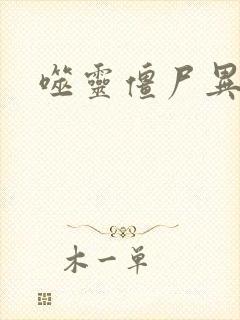 噬靈僵尸異
木一单